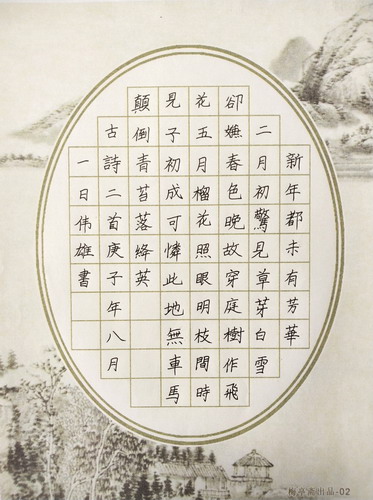 新年都未有芳華
二月初驚見草芽白雪
卻嫌春色晚故穿庭樹作飛
花五月榴花照眼明枝間時
見子初成可憐此地無車馬
顛倒青苔落絳英
古詩二首庚子年八月
一日伟雄書
梅亭斋出品-02